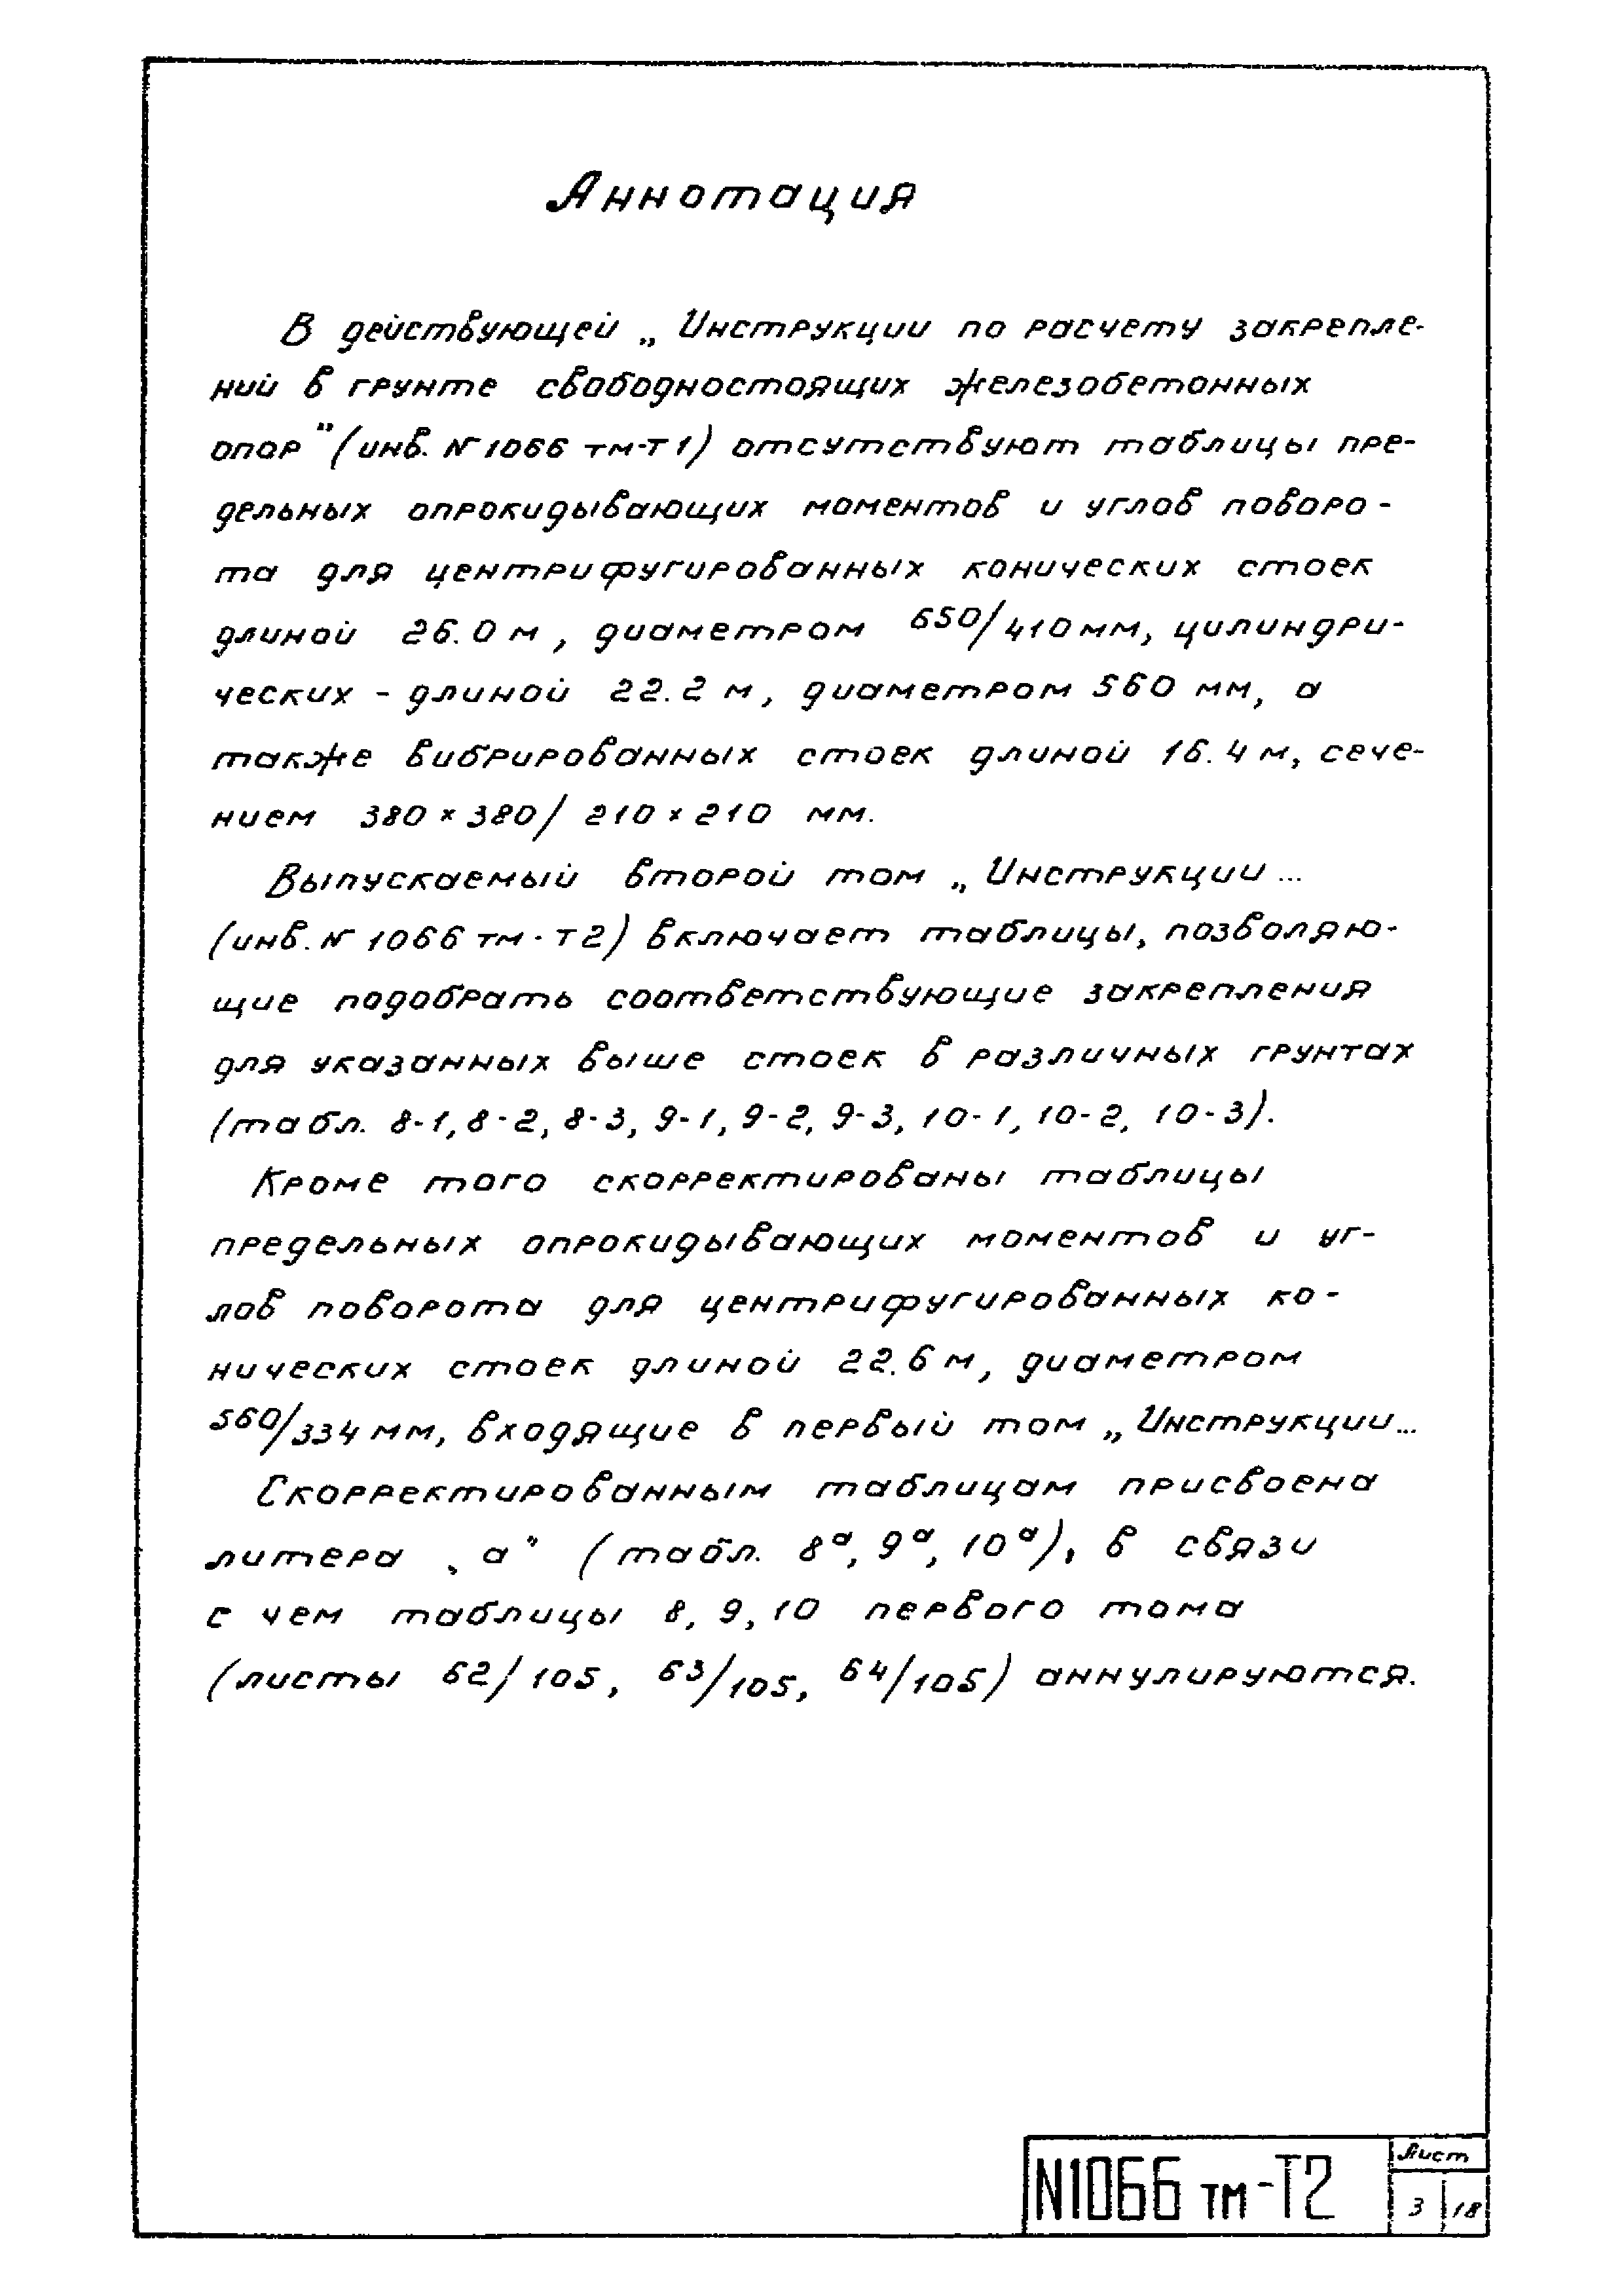 Аннотация
В действующей „Инструкции по расчету закрепле-
ний в грунте свободностоящих железобетонных
опор" (инв. № 1066 тм-т1) отсутствуют таблицы пре-
дельных опрокидывающих моментов и углов поворо-
та для центрифугированных конических стоек
длиной 26.0 м, диаметром 650/410 мм, цилиндри-
ческих - длиной 22.2 м, диаметром 560 мм, а
также вибрированных стоек длиной 16.4 м, сече-
нием 380 × 380/ 210 × 210 мм.
Выпускаемый второй том „Инструкции...
(инв. № 1066 тм-т2) включает таблицы, позволяю-
щие подобрать соответствующие закрепления
для указанных выше стоек в различных грунтах
(табл. 8-1, 8-2, 8-3, 9-1, 9-2, 9-3, 10-1, 10-2, 10-3).
Кроме того скорректированы таблицы
предельных опрокидывающих моментов и уг-
лов поворота для центрифугированных ко-
нических стоек длиной 22.6 м, диаметром
560/334 мм, входящие в первый том „Инструкции...
Скорректированным таблицам присвоена
литера „а" (табл. 8ᵃ, 9ᵃ, 10ᵃ), в связи
с чем таблицы 8, 9, 10 первого тома
(листы 62/105, 63/105, 64/105) аннулируются.
N1066 тм-Т2
Лист
3 18